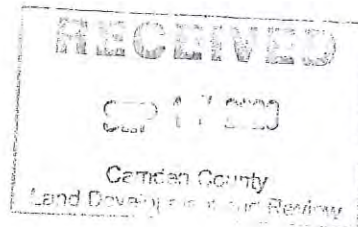 RECEIVED
SEP 17
Camden County
Land Development and Review